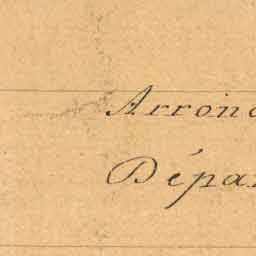 Arrond
Dépar